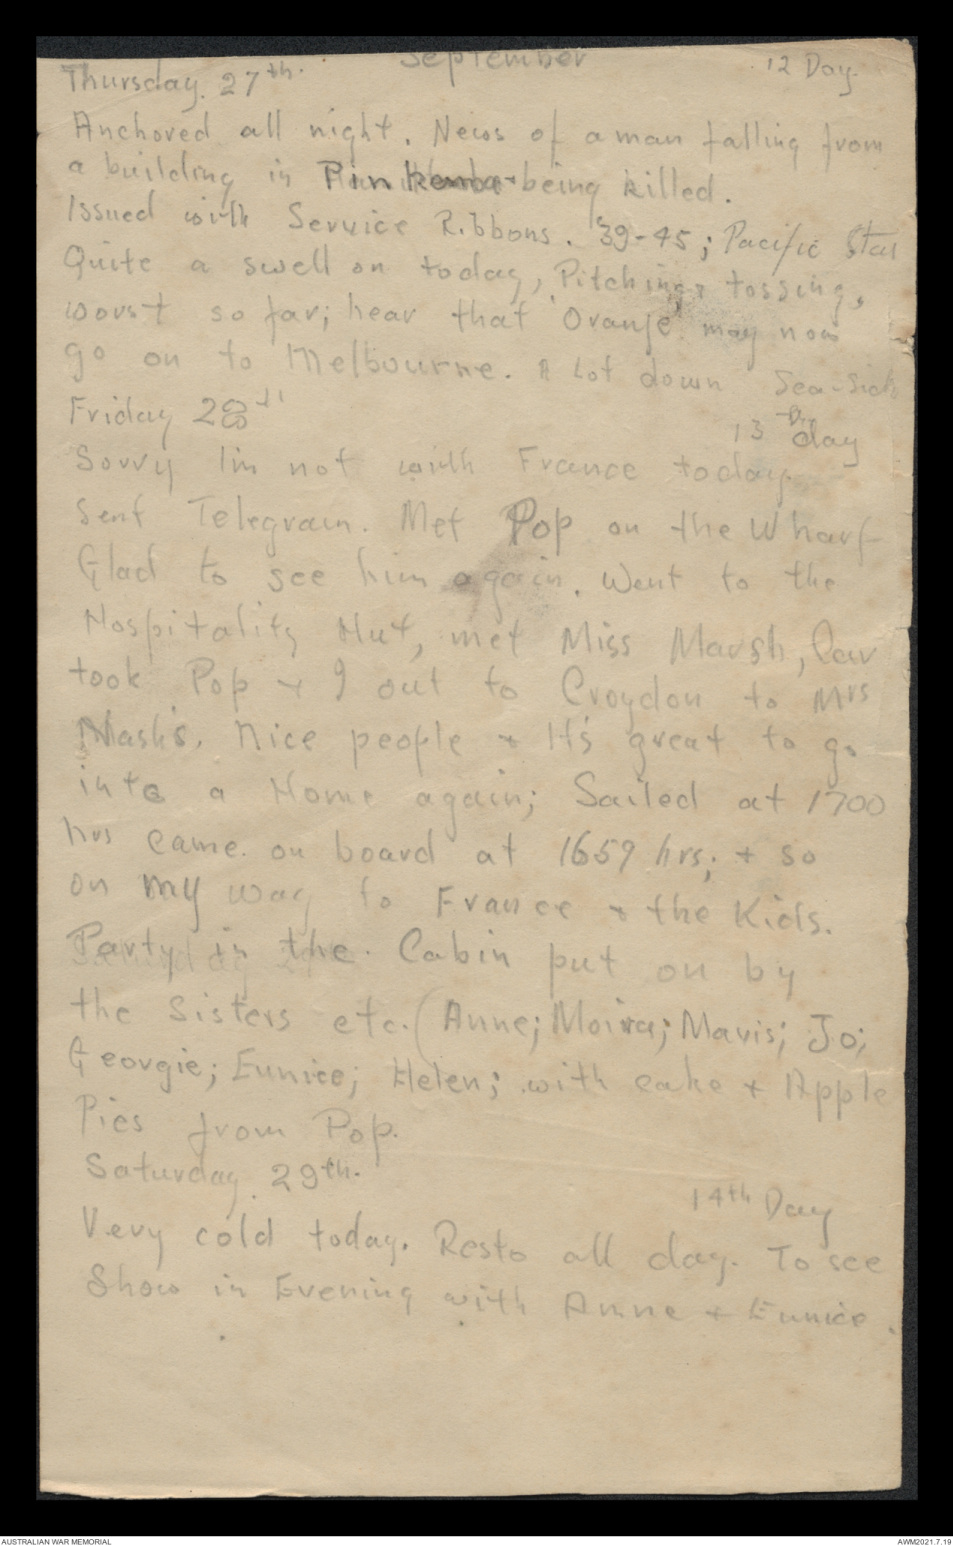 September
Thursday. 27th. 12 Day.
Anchored all night. News of a man falling from
a building in Pinkemba being killed.
Issued with Service Ribbons. 39-45; Pacific Star
Quite a swell on today, Pitching & tossing,
worst so far; hear that 'Oranje' may now
go on to Melbourne. A lot down Sea-Sick
Friday 28th
13 day
Sorry I'm not with France today.
Sent Telegram. Met Pop on the Wharf
Glad to see him again. Went to the
Hospitality Hut, met Miss Marsh, Car
took Pop & I out to Croydon to Mrs
Nash's. Nice people & It's great to go
into a Home again; Sailed at 1700
hrs came on board at 1659 hrs; & so
on my way to France & the Kids.
Party in the. Cabin put on by
the Sisters etc. (Anne; Moira; Mavis; Jo;
Georgie; Eunice; Helen; with cake & Apple
Pies from Pop.
Saturday. 29th.
14th Day
Very cold today. Resto all day. To see
Show in Evening with Anne & Eunice.
AUSTRALIAN WAR MEMORIAL AWM2021.7.19